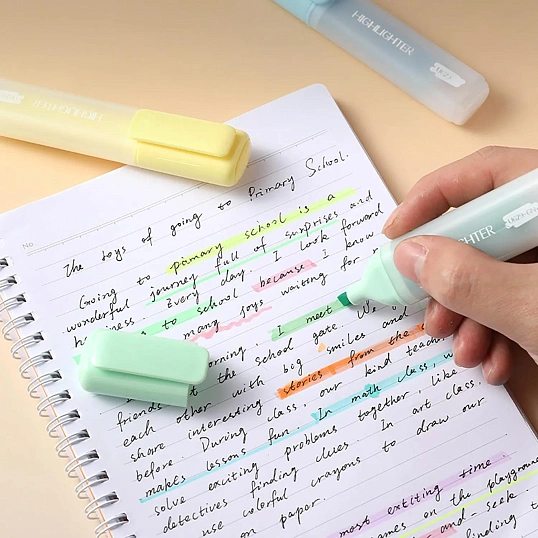 HIGHLIGHTER
HIGHLIGHTER
HLIGHTER
No.
The toys of going to Primary School.
Going to primary school is a
wonderful journey full of surprises and
happiness. Every day, I look forward
to school because I know
many joys waiting for
morning. I meet
friends at the school gate. We
each other with big smiles and
share interesting stories from the
before. During class, our kind teacher
makes lessons fun. In math class, we
solve exciting problems together, like
detectives finding clues. In art class,
use colorful crayons to draw our
on paper.
most exciting time.
games on the playground
and-seek.